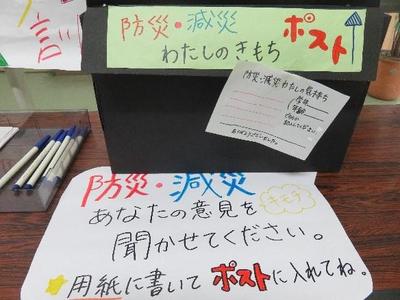 防災・減災
わたしのきもち
ポスト
防災・減災わたしの気持ち
防災・減災
あなたの意見を
キモチ
聞かせてください。
用紙に書いてポストに入れてね。